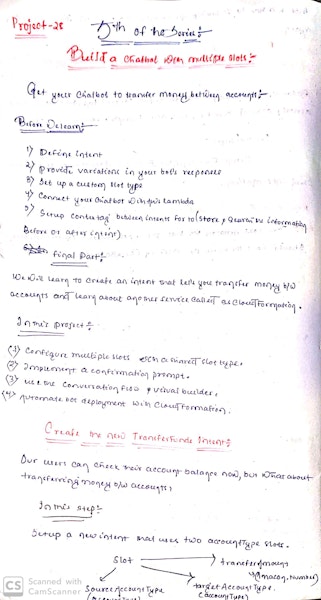 Project-28
5th of the Series:
Build a Chatbot with multiple slots:-
Get your Chatbot to transfer money between accounts:-
Before we learn:-
1) Define intent
2) Provide variations in your bot's responses
3) Set up a custom slot type
4) Connect your chatbot with AWS Lambda
5) Setup context between intents for to (store & information
Before or after intent).
Final Part:-
We will learn to create an intent that lets you transfer money b/w
accounts and learn about another service called as CloudFormation.
In this project:-
(1) Configure multiple slots with a shared slot type.
(2) Implement a confirmation prompt.
(3) Use the conversation flow & visual builder.
(4) Automate bot deployment with CloudFormation.
Create the new TransferFunds Intent:-
Our users can check their account balance now, but what about
transferring money b/w accounts?
In this step:-
Setup a new intent that uses two accountType slots.
Slot
transferAmount
(Amazon.Number)
SourceAccountType
targetAccountType.
(accountType)
(accountType)
CS Scanned with
CamScanner